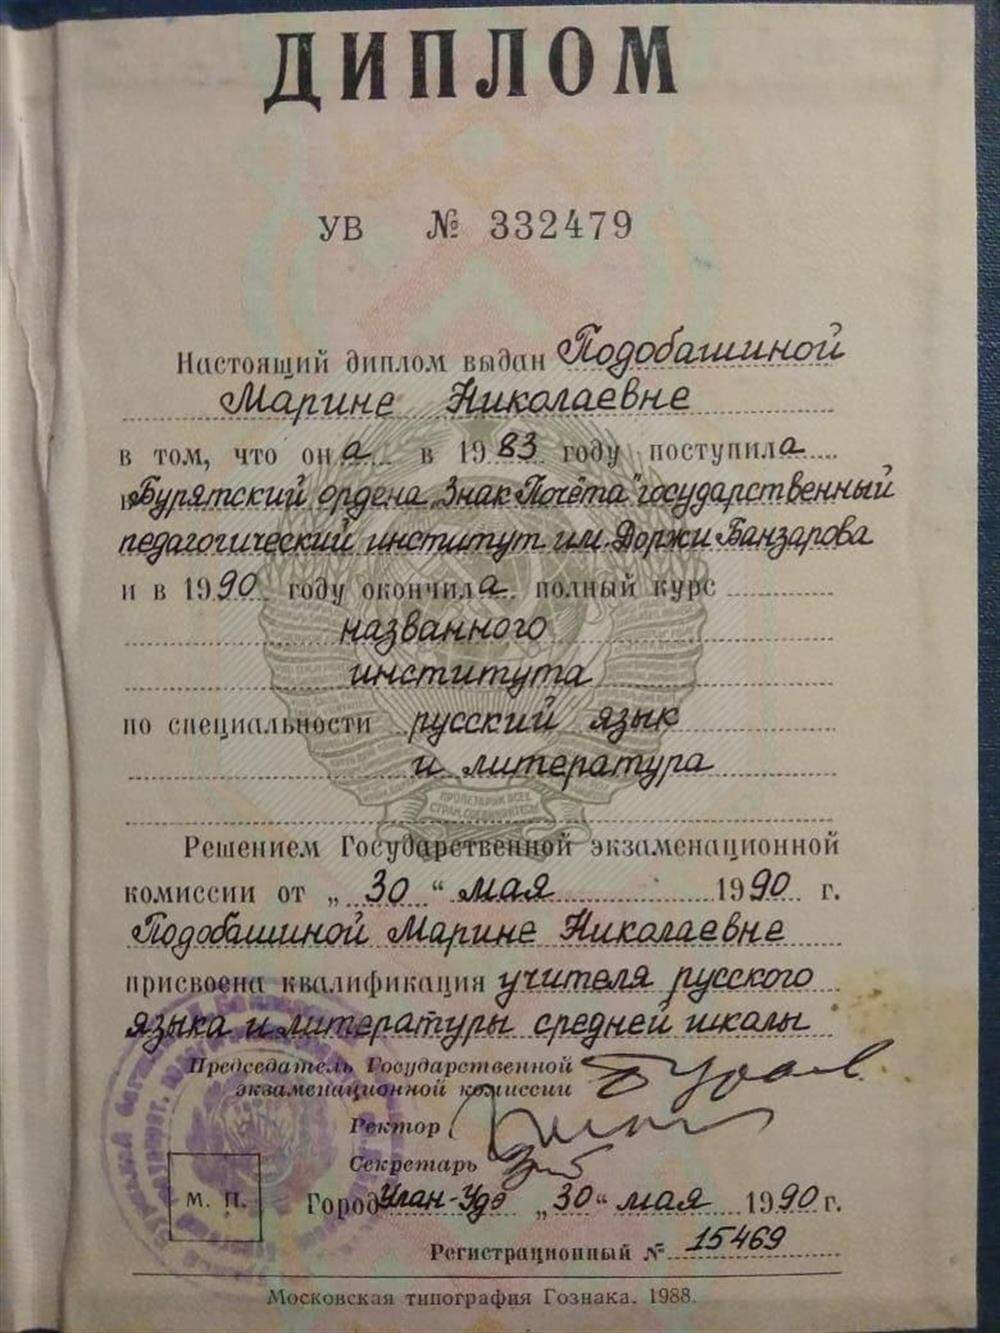 ДИПЛОМ
УВ № 332479
Настоящий диплом выдан Подобашиной
Марине Николаевне
в том, что она в 1983 году поступила
в Бурятский ордена „Знак Почёта" государственный
педагогический институт им. Доржи Банзарова
и в 1990 году окончила полный курс
названного
института
по специальности русский язык
и литература
ПРОЛЕТАРИИ ВСЕХ
СТРАН, СОЕДИНЯЙТЕСЬ!
Решением Государственной экзаменационной
комиссии от „30“ мая 1990 г.
Подобашиной Марине Николаевне
присвоена квалификация учителя русского
языка и литературы средней школы
Председатель Государственной
экзаменационной комиссии
Ректор
Секретарь
М. П.
Город Улан-Удэ „30“ мая 1990 г.
Регистрационный № 15469
Московская типография Гознака. 1988.